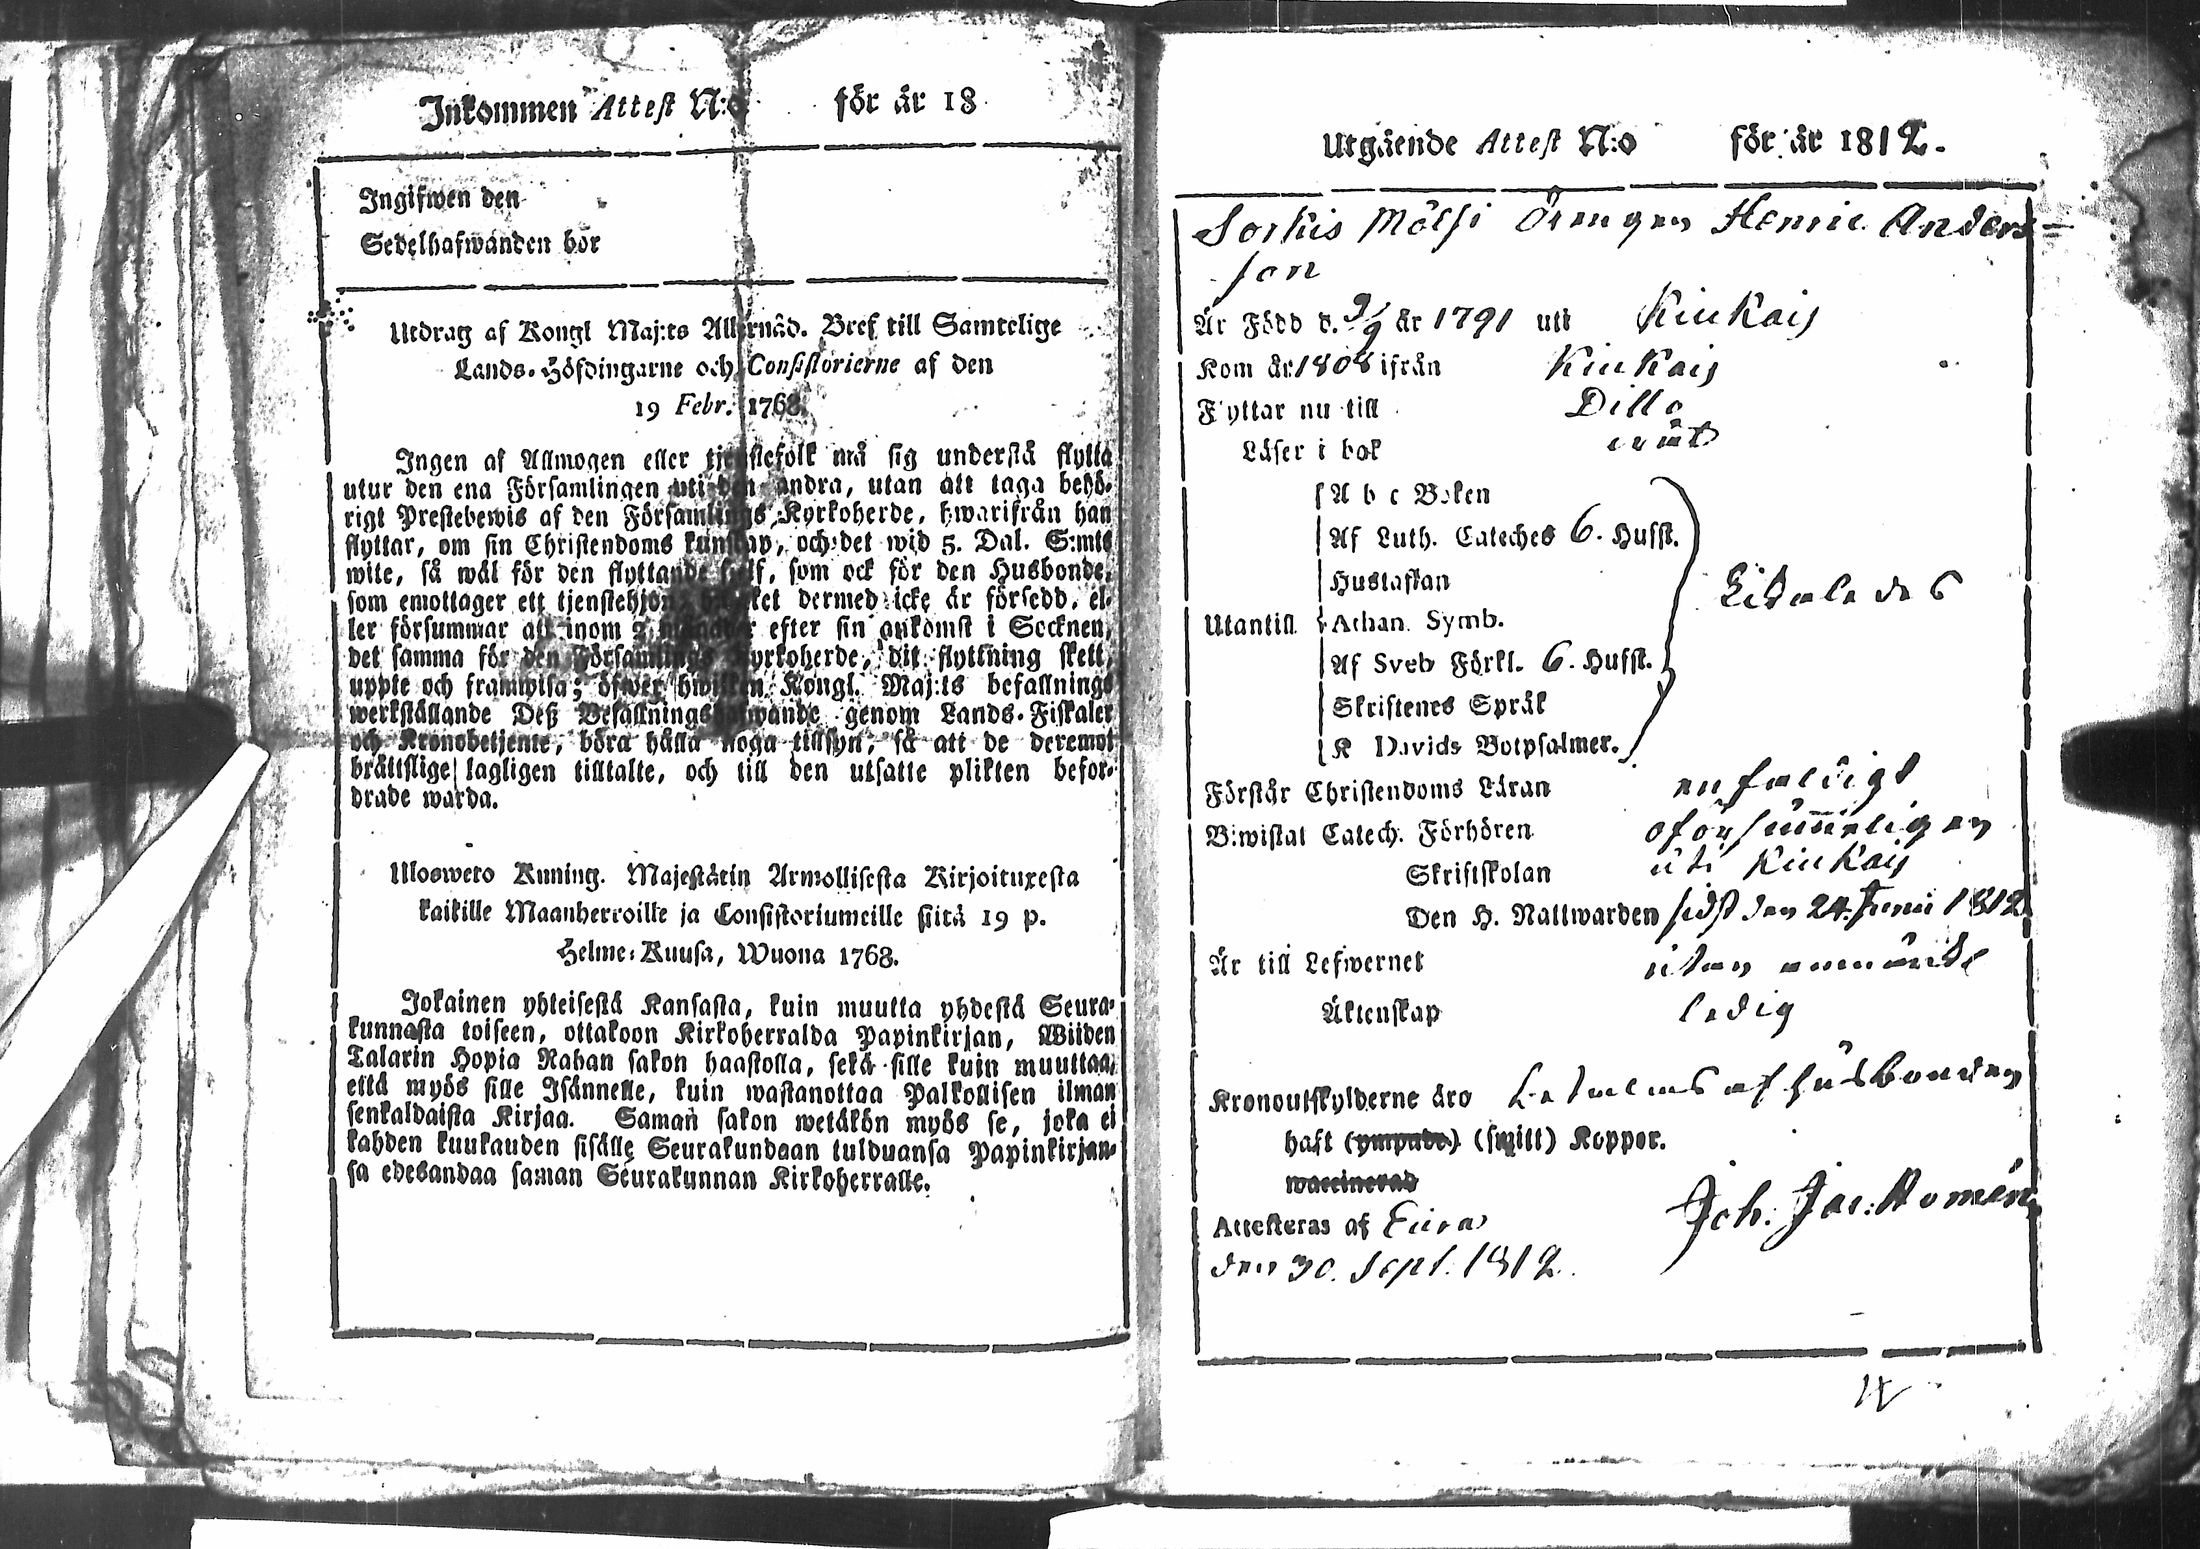 Inkommen Attest N:o för år 18
Ingifwen den
Sedelhafwanden bör
Utdrag af Kongl Maj:ts Allernåd. Bref till Samtelige
Lands-Höfdingarne och Consistorierne af den
19 Febr. 1768.
Ingen af Allmogen eller tjenstefolk må sig understå flytta
utur den ena Församlingen uti den andra, utan att taga behö-
rigt Prestebewis af den Församlings Kyrkoherde, hwarifrån han
flyttar, om sin Christendoms kunskap, och det wid 5. Dal. S:mts
wite, så wäl för den flyttande sjelf, som ock för den Husbonde,
som emottager ett tjenstehjon, hwilket dermed icke är försedd, el-
ler försummar att inom 2 månader efter sin ankomst i Socknen,
det samma för den Församlings Kyrkoherde, dit flyttning skett,
uppte och framwisa; öfwer hwilken Kongl. Maj:ts befallnings
werkställande Deß Befallningshafwande genom Lands-Fiskaler
och Kronobetjente, böra hålla noga tillsyn, så att de deremot
bråttslige lagligen tilltalte, och till den utsatte plikten befor-
drade warda.
Ulosweto Kuning. Majestätin Armollisesta Kirjoituxesta
kaikille Maanherroille ja Consistoriumeille siitä 19 p.
Helme-Kuusa, Wuona 1768.
Jokainen yhteisestä Kansasta, kuin muutta yhdestä Seura-
kunnasta toiseen, ottakoon Kirkoherralda Papinkirjan, Wiiden
Talarin Hopia Rahan sakon haastolla, sekä sille kuin muuttaa,
että myös sille Isännelle, kuin wastanottaa Palkollisen ilman
senkaldaista Kirjaa. Saman sakon wetäkön myös se, joka ei
kahden kuukauden sisälle Seurakundaan tulduansa Papinkirjan-
sa edesandaa saman Seurakunnan Kirkoherralle.
Utgående Attest N:o för år 1812.
Sorkis Mölsi Drengen Henric Anders=
son
Är Född d. 9/9 år 1791 uti Kiukais
Kom år 1808 ifrån Kiukais
Flyttar nu till Ditto
Läser i bok
A b c Boken
Af Luth. Cateches 6. Hufst.
Hustaflan
Utantill Athan. Symb.
Af Sveb Förkl. 6. Hufst.
Skriftenes Språk
K Davids Botpsalmer.
Förstår Christendoms Läran enfaldigt
Biwistat Catech. Förhören oförsummeligen
Skriftskolan uti Kiukais
Den H. Nattwarden sidst den 24. Junii 1812
Är till Lefwernet utan anmärkt
Äktenskap ledig
Kronoutskylderne äro betalns af husbonden
haft (ympade) (smitt) Koppor.
waccinerad
Attesteras af Eura Joh. Jac. Romén
den 30. Sept. 1812.